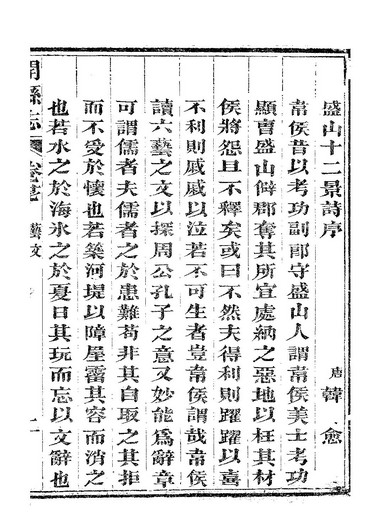 盛山十二景詩序
唐 韓愈
韋侯昔以考功副郎守盛山人謂韋侯美士考功
顯曹盛山僻郡奪其所宜處納之惡地以枉其材
韋侯將怨且不釋矣或曰不然夫得利則躍躍以喜
不利則戚戚以泣若不可生者豈韋侯謂哉韋侯
讀六藝之文以探周公孔子之意又妙能爲辭章
可謂儒者夫儒者之於患難苟非其自取之其拒
而不受於懷也若築河堤以障屋霤其容而消之
也若水之於海氷之於夏日其玩而忘以文辭也
開縣志 藝文